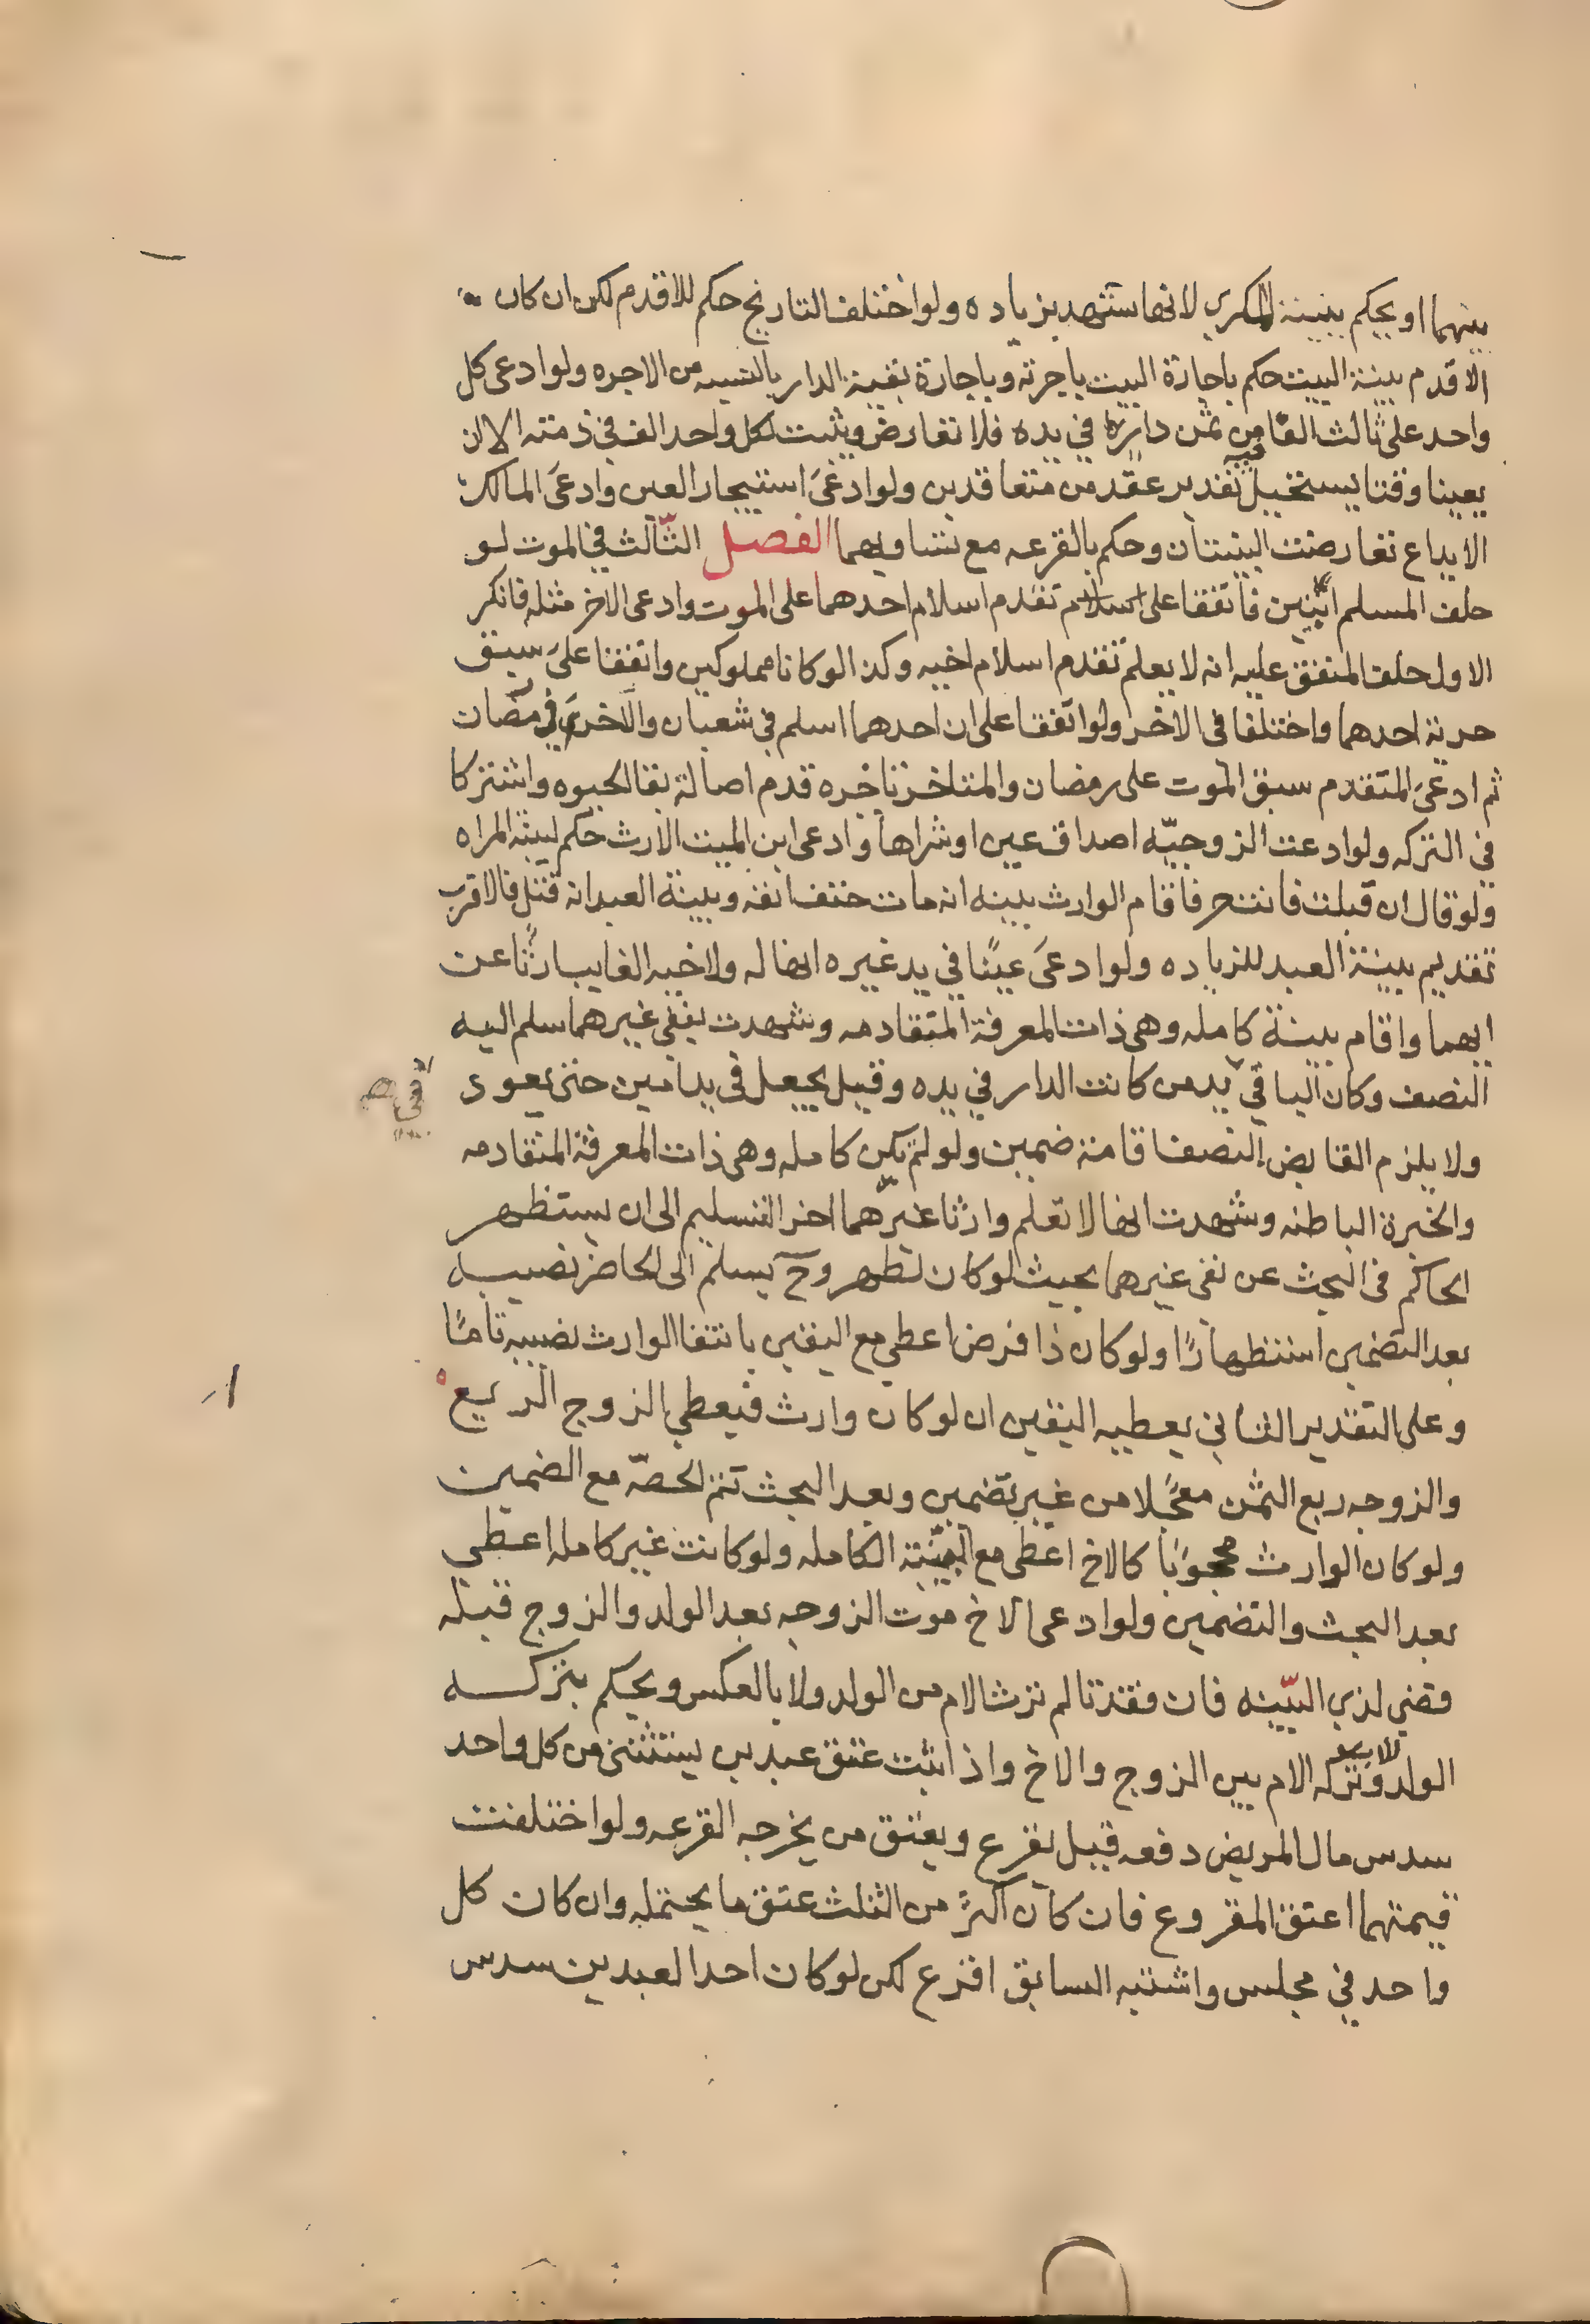 بينهما او يحكم ببينة المكري لانها ستشهد بزياده ولو اختلف التاريخ حكم للاقدم لكن ان كان
الاقدم بينة البيت حكم باجارة البيت باجرته وباجارة بقية الدار بالنسبه من الاجره ولو ادعى كل
واحد على ثالث الفا من ثمن داره في يده فلا تعارض ويثبت لكل واحد الف في ذمته الا ان
يعينا وقتا يستحيل فيه تقدير عقد من متعاقدين ولو ادعى استيجار العين وادعى المالك
الايداع تعارضت البينتان وحكم بالقرعه مع تساويهما الفصل الثالث في الموت لو
خلف المسلم ابنين فاتفقا على تقدم اسلام احدهما على الموت وادعى الاخر مثله فانكر
الاول حلف المتفق عليه انه لا يعلم تقدم اسلام اخيه وكذا لو كانا مملوكين واتفقا على سبق
حرية احدهما واختلفا في الاخر ولو اتفقا على ان احدهما اسلم في شعبان والاخر في رمضان
ثم ادعى المتقدم سبق الموت على رمضان والمتاخر تاخره قدم اصالة بقا الحيوه واشتركا
في التركه ولو ادعت الزوجيّه اصداق عين او شراها وادعى ابن الميت الارث حكم لبينة المراه
ولو قال ان قتلت فانت حر فاقام الوارث بينه انه مات حتف انفه وبينة العبد انه قتل فالاقرب
تقديم بينة العبد للزياده ولو ادعى عينًا في يد غيره انها له ولاخيه الغايب ارثًا عن
ابيهما واقام بينة كامله وهي ذات المعرفة المتقادمه وشهدت بنفي غيرهما سلم اليه
النصف وكان الباقي يد من كانت الدار في يده وقيل يجعل في يد امين حتى يعود
في صح
ولا يلزم القابض النصف اقامة ضمين ولو لم تكن كامله وهي ذات المعرفة المتقادمه
والخبرة الباطنه وشهدت انها لا تعلم وارثا غيرهما اخر التسليم الى ان يستظهر
الحاكم في البحث عن نفي غيرهما بحيث لو كان لظهر وح يسلم الى الحاضر نصيبه
بعد التضمين استظهارًا ولو كان ذا فرض اعطي مع اليقين بانتفا الوارث نصيبه تامًا
وعلى التقدير الثاني يعطيه اليقين ان لو كان وارث فيعطي الزوج الربع
والزوجه ربع الثمن معجّلا من غير تضمين وبعد البحث تتم الحصّه مع الضمين
ولو كان الوارث محجوبًا كالاخ اعطي مع البيّنة الكامله ولو كانت غير كامله اعطي
بعد البحث والتضمين ولو ادعى الاخ موت الزوجه بعد الولد والزوج قبله
قضي لذي البيّنه فان فقدتا لم ترث الام من الولد ولا بالعكس ويحكم بتركه
الولد لابيه وتركه الام بين الزوج والاخ واذا ثبت عتق عبدين يستثنى من كل واحد
سدس مال المريض دفعه قيل يقرع ويعتق من يخرجه القرعه ولو اختلفت
قيمتهما اعتق المقروع فان كان اكثر من الثلث عتق ما يحتمله وان كان كل
واحد في مجلس واشتبه السابق اقرع لكن لو كان احد العبدين سدس